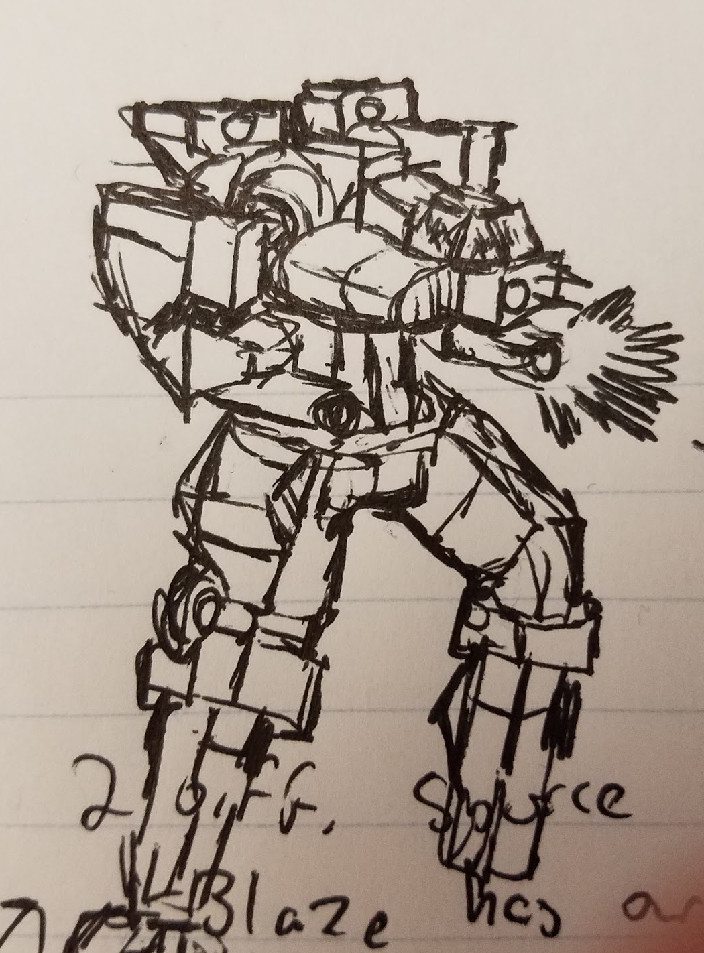 2 diff. Source
Blaze has